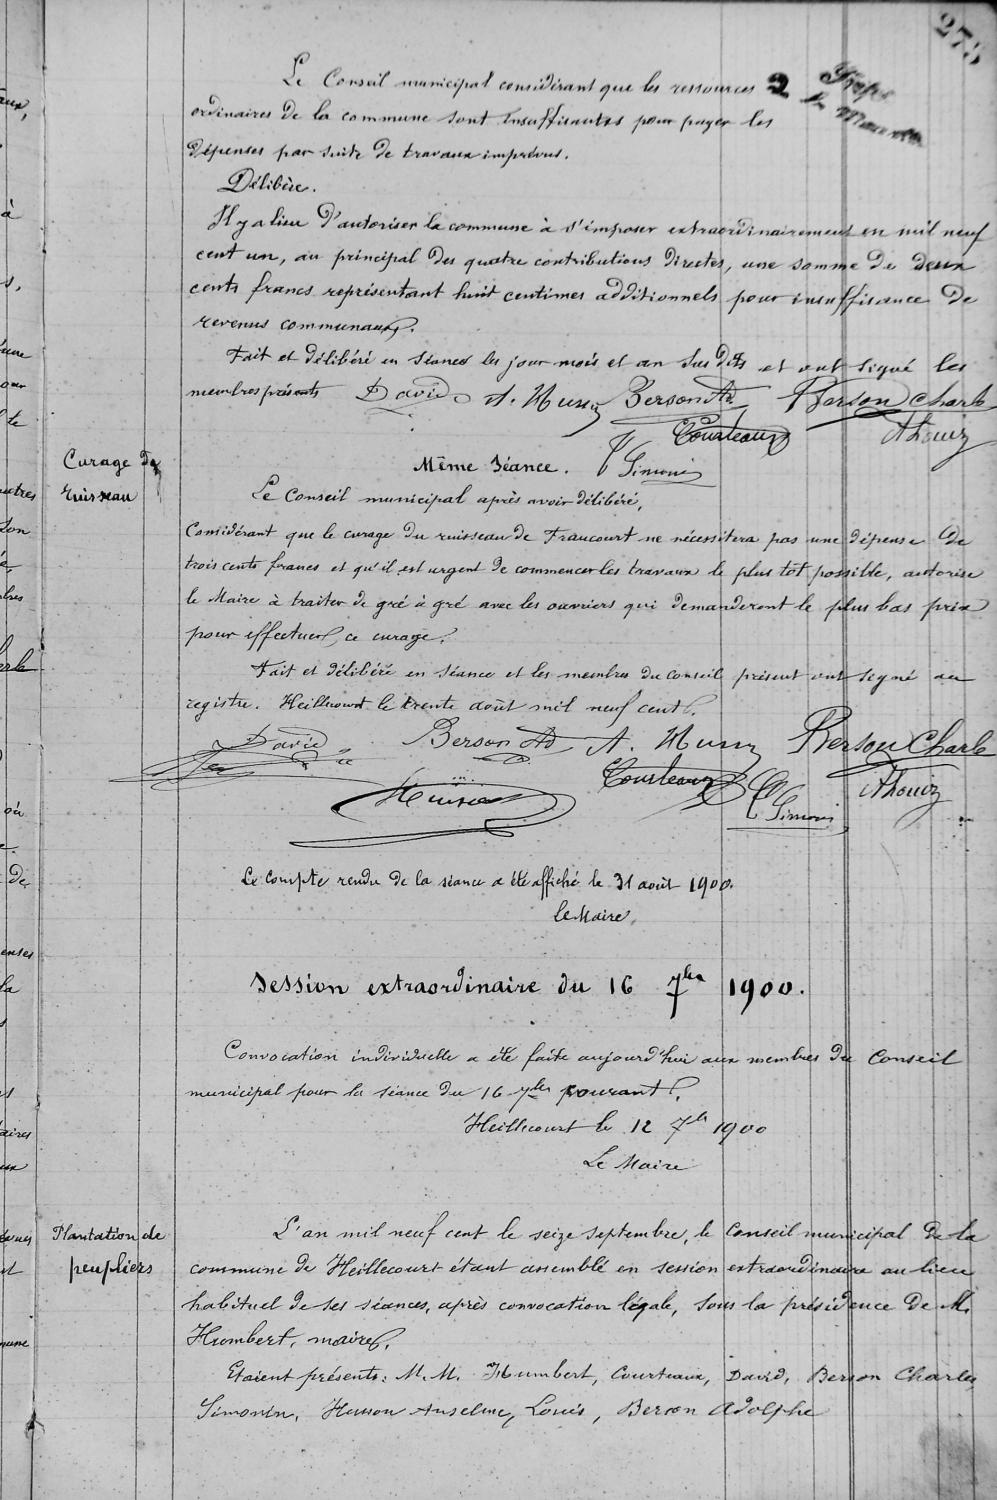 273
Le Conseil municipal considérant que les ressources
ordinaires de la commune sont insuffisantes pour payer les
dépenses par suite de travaux imprévus.
Délibère.
Il y a lieu d'autoriser la commune à s'imposer extraordinairement en mil neuf
cent un, au principal des quatre contributions directes, une somme de deux
cents francs représentant huit centimes additionnels pour insuffisance de
revenus communaux.
Fait et délibéré en séance les jour mois et an sus dits et ont signé les
membres présents David A. Husson Berson Ad Berson Charle
Courteaux A Louis
Simonin
Curage du
ruisseau
Même Séance.
Le Conseil municipal après avoir délibéré,
Considérant que le curage du ruisseau de Fraucourt ne nécessitera pas une dépense de
trois cents francs et qu'il est urgent de commencer les travaux le plus tôt possible, autorise
le Maire à traiter de gré à gré avec les ouvriers qui demanderont le plus bas prix
pour effectuer ce curage.
Fait et délibéré en séance et les membres du conseil présent ont signé au
registre. Heillecourt le trente août mil neuf cent.
David Berson Ad A. Husson Berson Charle
Courteaux A Louis
Simonin
Le compte rendu de la séance a été affiché le 31 août 1900.
le Maire,
Session extraordinaire du 16 7bre 1900.
Convocation individuelle a été faite aujourd'hui aux membres du Conseil
municipal pour la séance du 16 7bre courant.
Heillecourt le 12 7bre 1900
Le Maire
Plantation de
peupliers
L'an mil neuf cent le seize septembre, le Conseil municipal de la
commune de Heillecourt étant assemblé en session extraordinaire au lieu
habituel de ses séances, après convocation légale, sous la présidence de M.
Humbert, maire.
Etaient présents: M.M. Humbert, Courteaux, David, Berson Charles,
Simonin, Husson Anselme, Louis, Berson Adolphe